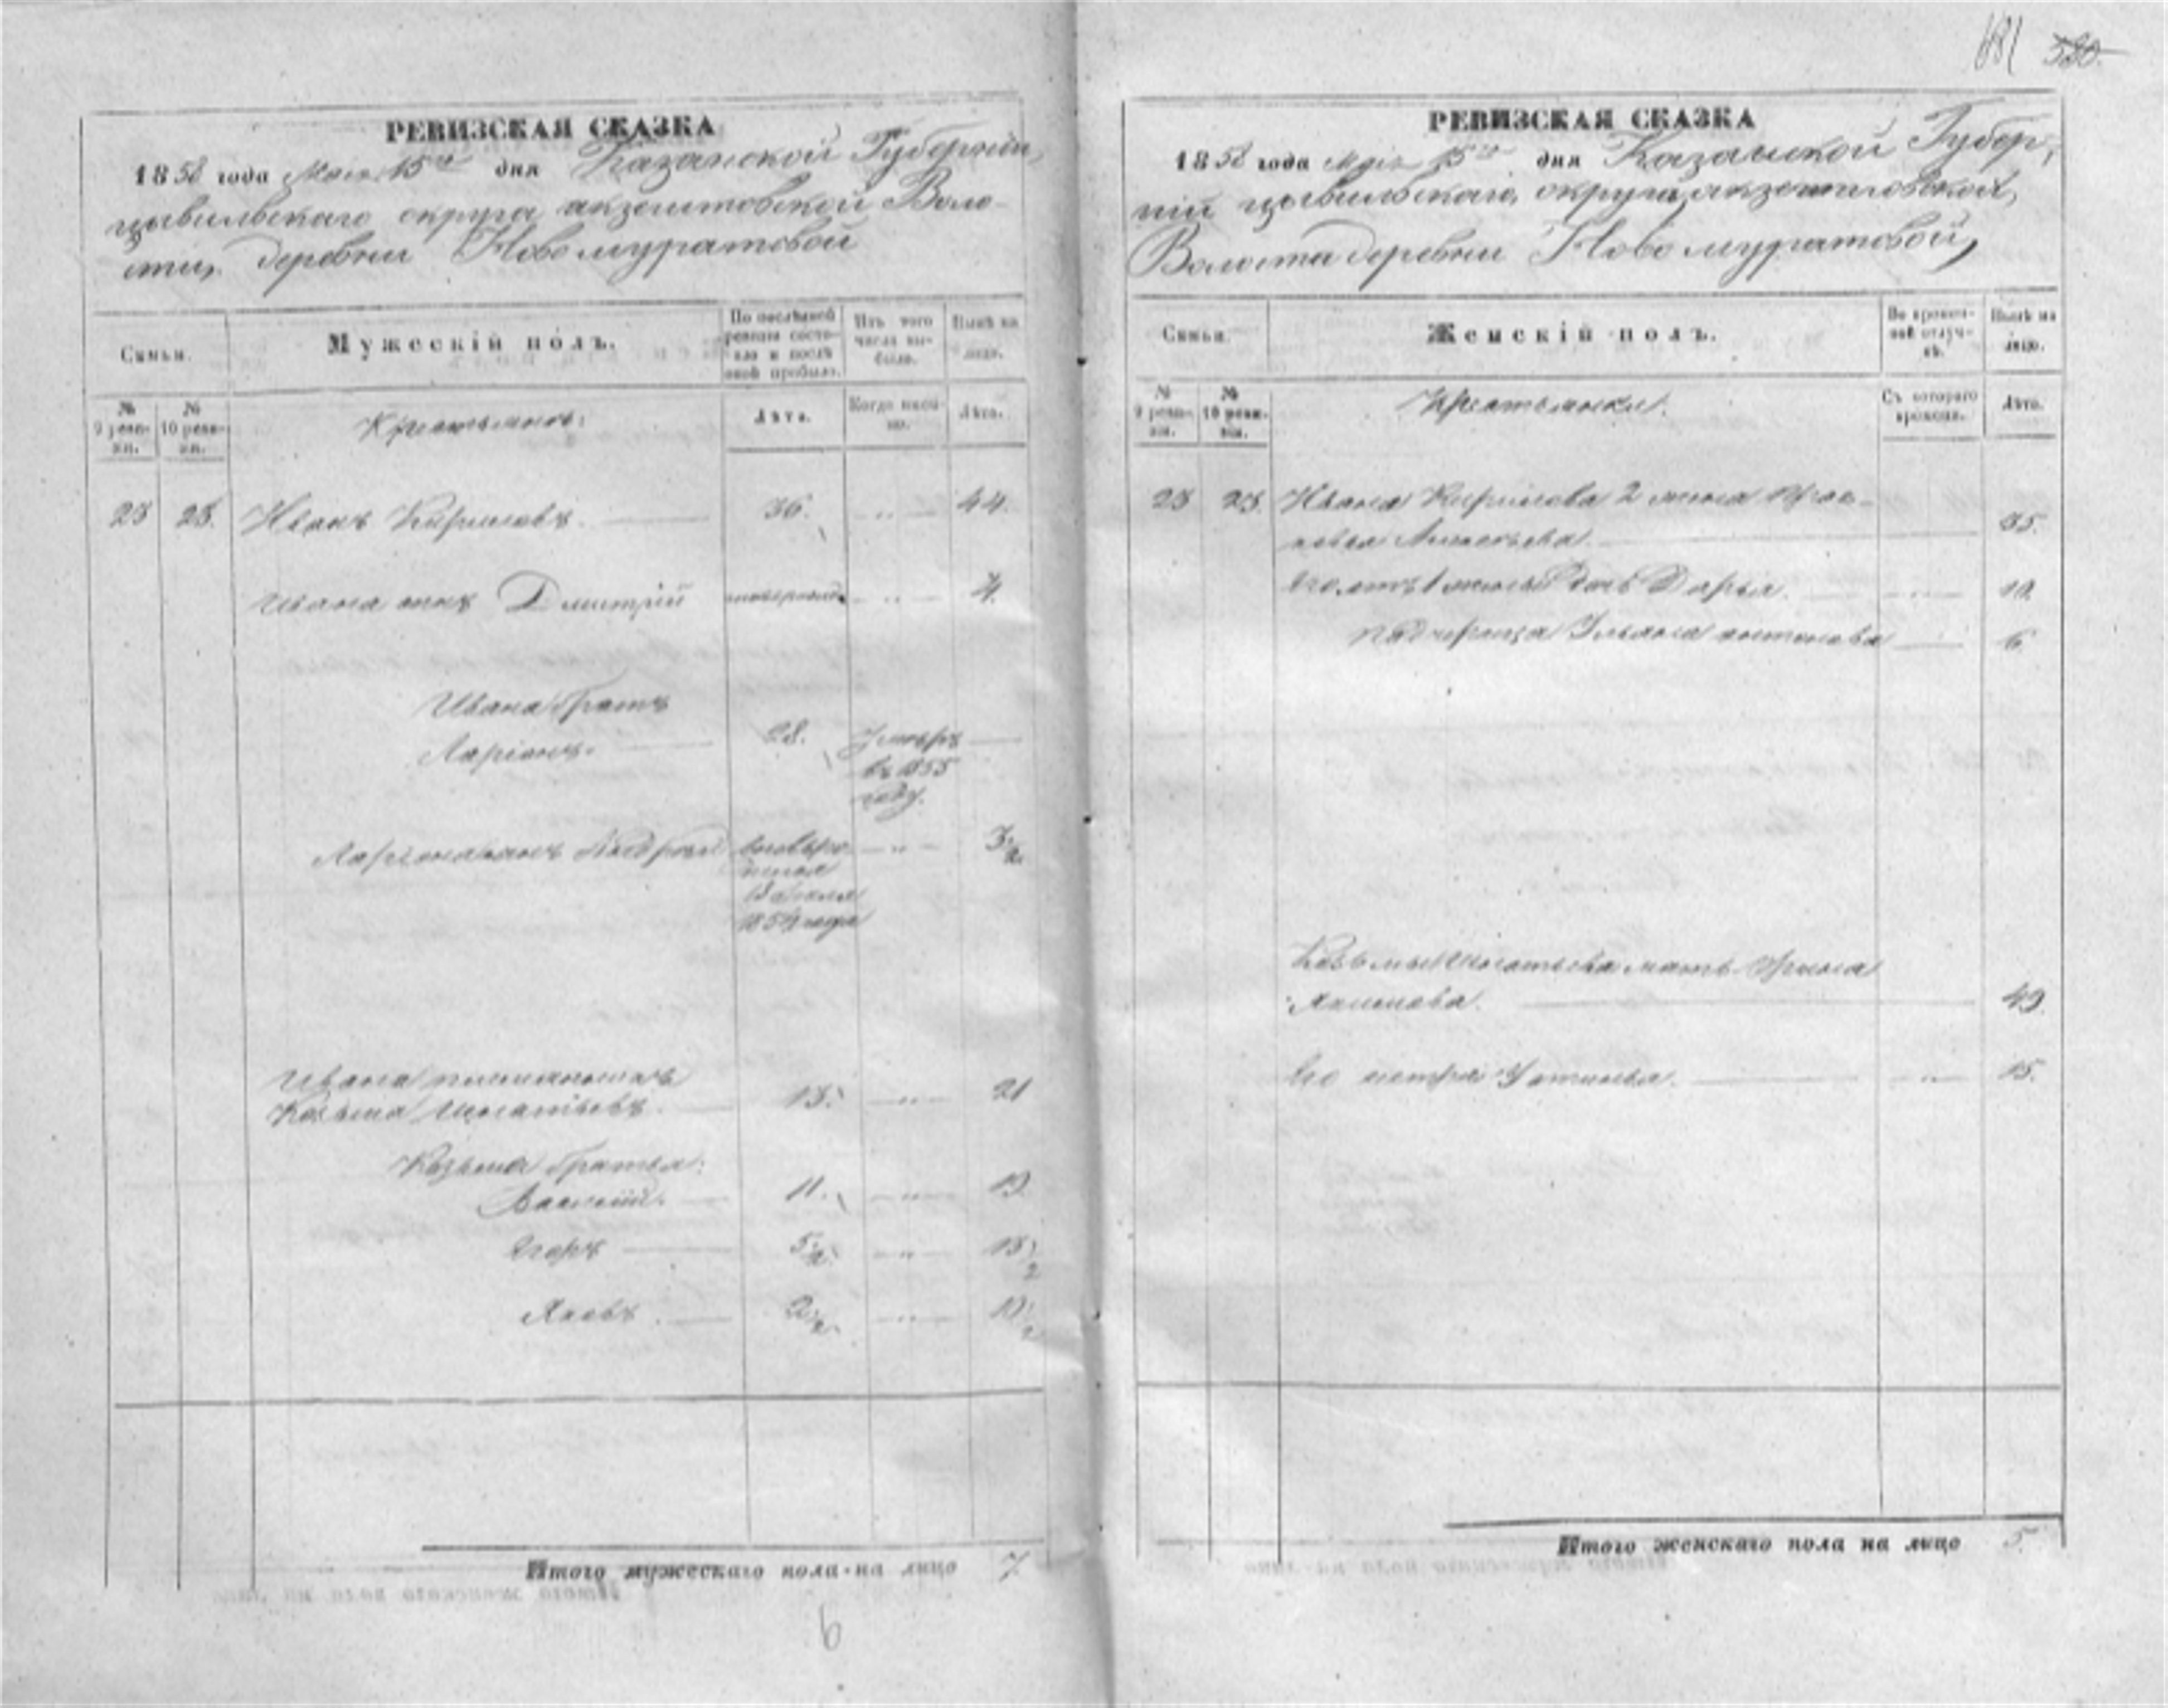 681 580.
РЕВИЗСКАЯ СКАЗКА
1858 года Маія 15го дня Казанской Губерніи,
цывильскаго округа акзегитовской Воло-
сти, деревни Новомуратовой
Семьи.
Мужескій полъ.
По послѣдней ревизіи состо-
яло и послѣ оной прибыло.
Изъ того числа вы-
было.
Нынѣ на лицо.
№ 9 реви-
зіи.
№ 10 реви-
зіи.
Крестьянъ:
Лѣта.
Когда имен-
но.
Лѣта.
28 28. Иванъ Кириловъ. 36. 44.
Ивана сынъ Дмитрій 4.
Ивана братъ
Ларіонъ. 28. Умеръ
въ 1855
году.
Ларіона сынъ 3½
1854 года
Ивана
Козьма Игнатьевъ. 13. 21
Козьма братья:
Василій. 11. 19.
Егоръ 5½ 13½
Яковъ. 2½ 10½
Итого мужескаго пола на лицо 7.
9
РЕВИЗСКАЯ СКАЗКА
1858 года Маія 15го дня Казанской Губер-
ніи цывильскаго, округа, акзегитовской,
Волости деревни Новомуратовой,
Семьи.
Женскій полъ.
Во времен-
ной отлуч-
кѣ.
Нынѣ на лицо.
№ 9 реви-
зіи.
№ 10 реви-
зіи.
Крестьянки.
Съ котораго времени.
Лѣта.
28 28. Ивана Кирилова 2 жена Прас-
ковья 35.
Его отъ 1 жены дочь Дарья. 10.
Падчерица Ульяна антонова 6.
Козьмы Игнатьева мать Ирина
49.
Его сестра Устинья. 15.
Итого женскаго пола на лицо 5.